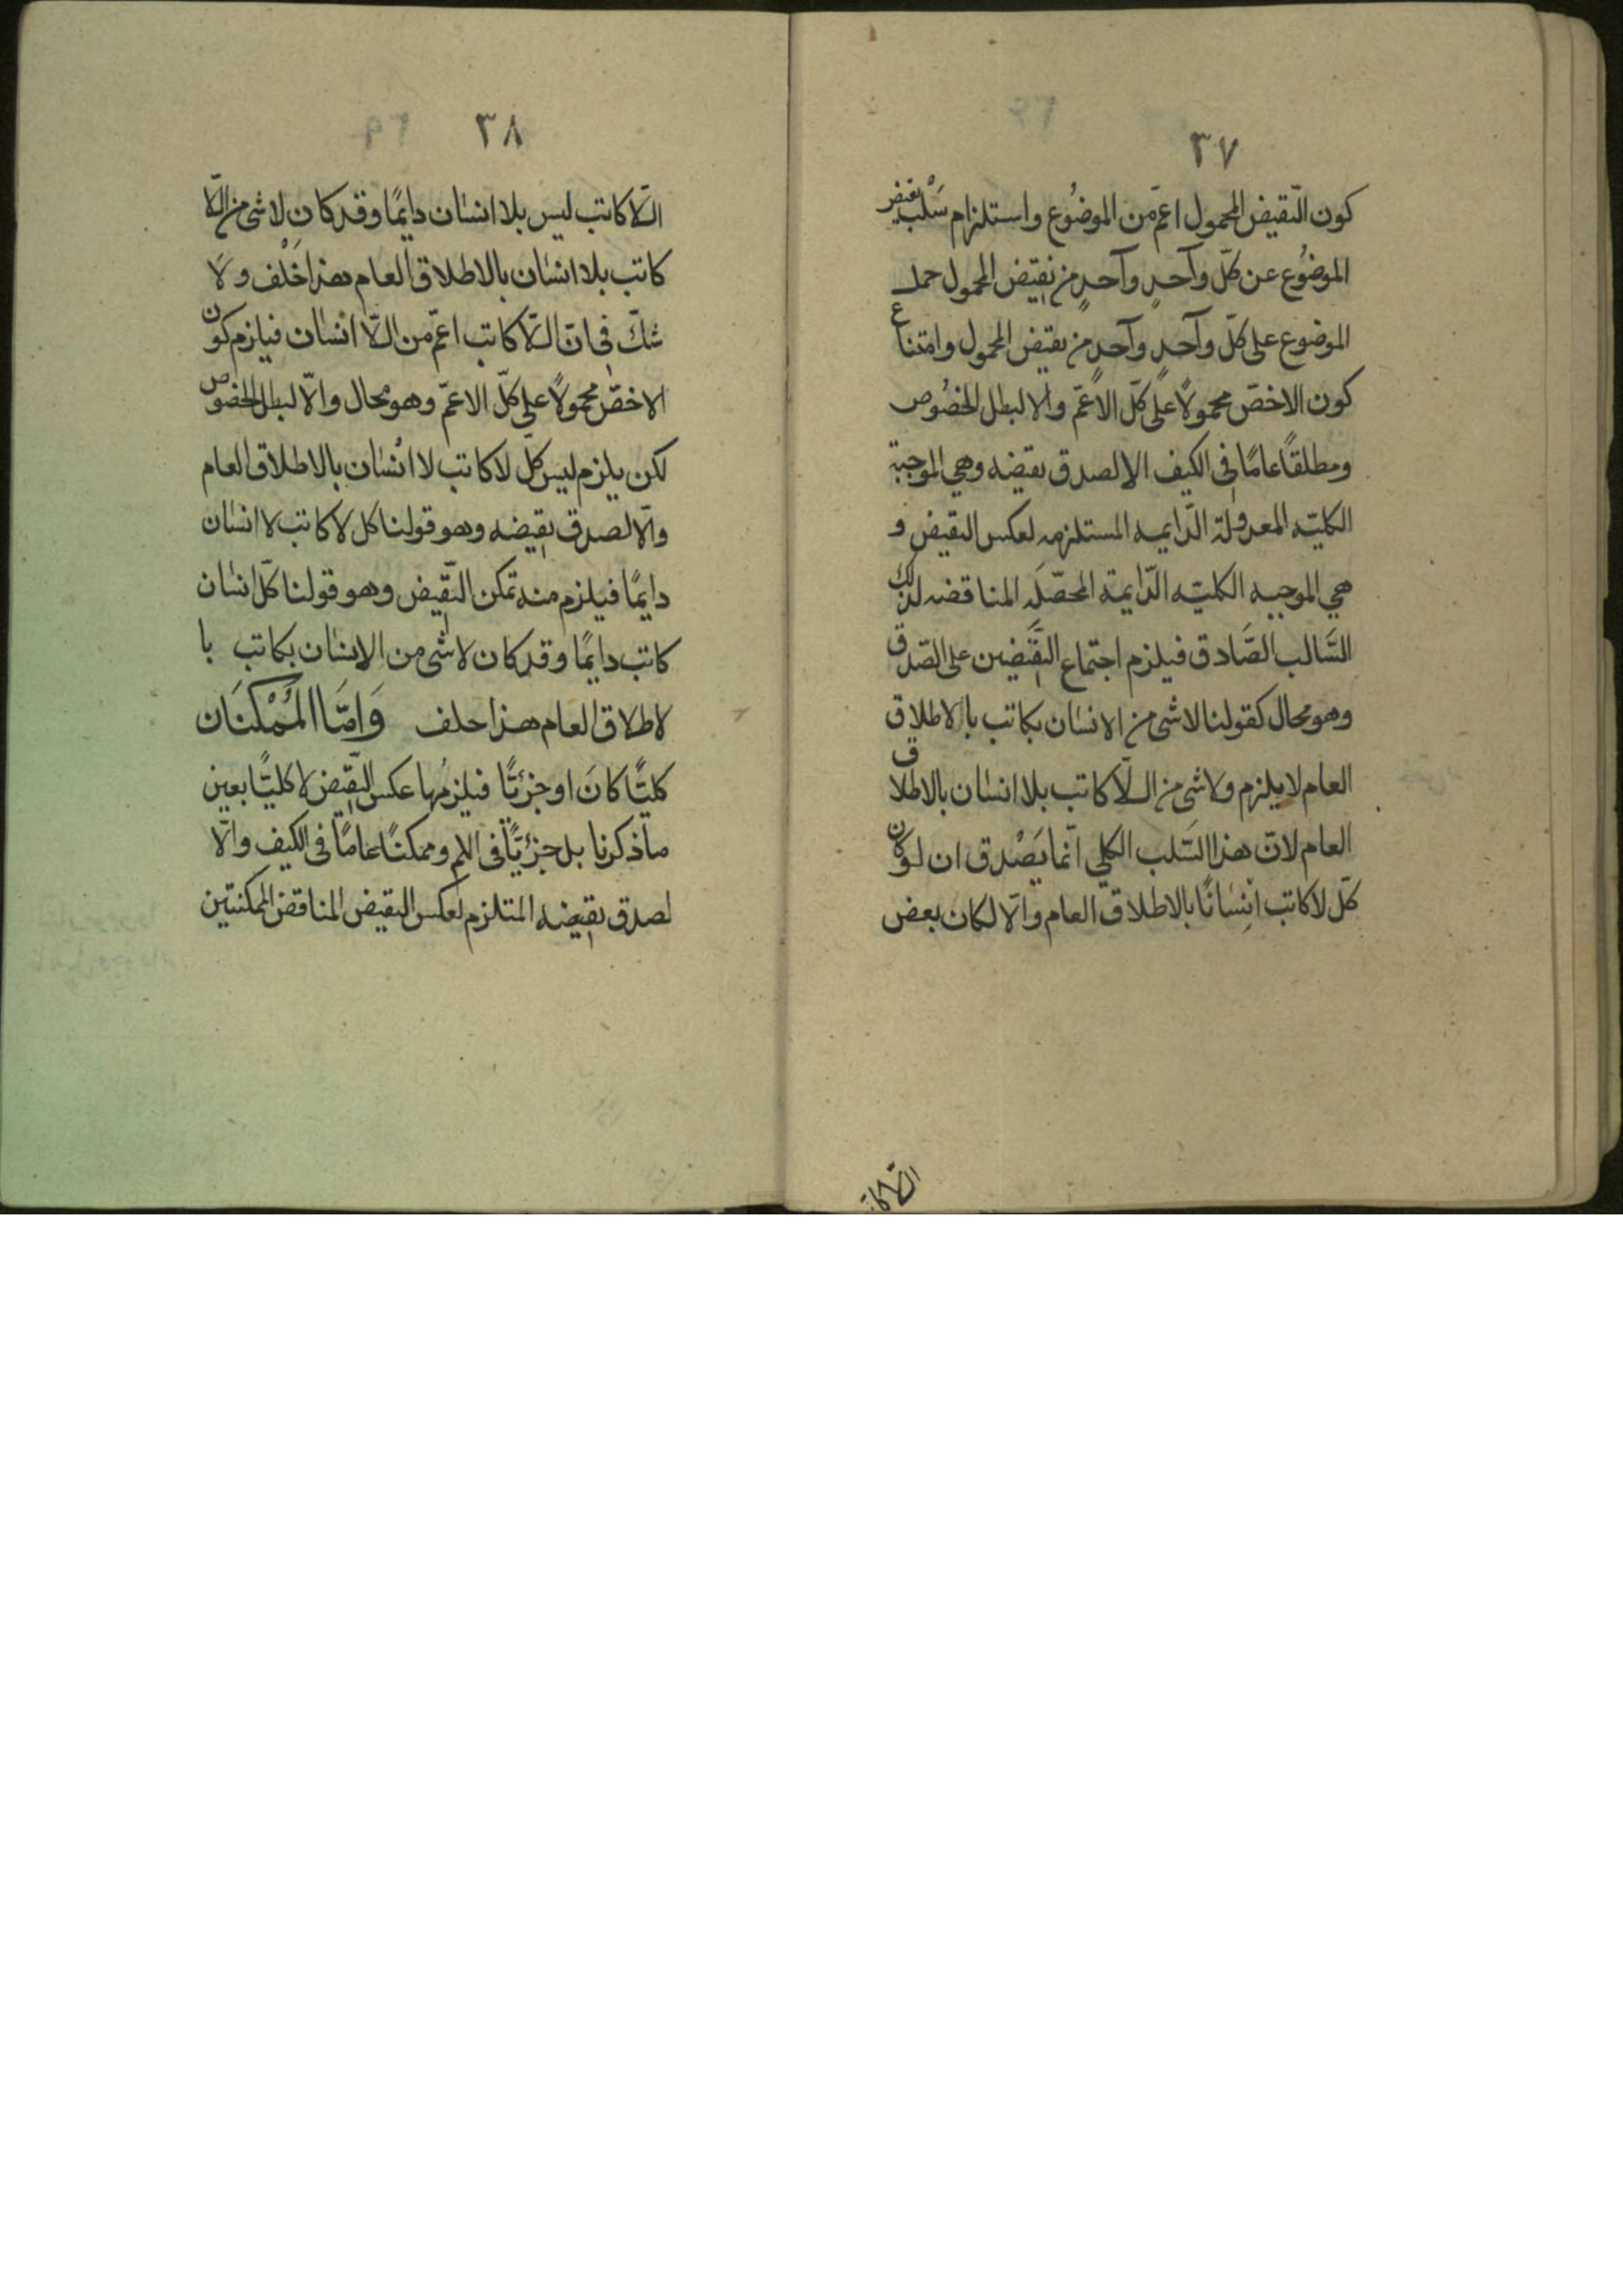 ٣٧
كون النّقيض المحمول اعمّ من الموضُوع واستلزام سَلْب نقيض
الموضُوع عن كلّ وآحدٍ وآحدٍ من نقيض المحمول حمل
الموضوع على كلّ وآحدٍ وآحدٍ من نقيض المحمول وامتناع
كون الاخصّ محمولاً على كلّ الاعمّ والا لبطل الخصُوص
ومطلقاً عامًا فى الكيف الا لصدق نقيضه وهى الموجبة
الكليّه المعدولة الدّايمه المستلزمه لعكس النقيض و
هى الموجبه الكليّه الدّايمة المحصّلَه المناقضه لذلك
السَّالب الصَّادق فيلزم اجتماع النّقيضين على الصّدق
وهو محال كقولنا لاشى من الانسان بكاتب بالاطلاق
العام لا يلزم ولاشى من الّلاكاتب بلا انسان بالاطلاق
العام لانّ هذا السَّلب الكلي انّما يَصْدق ان لو كان
كلّ لاكاتب انسَانًا بالاطلاق العام والّا لكان بعض
الّلاكاتب
٣٨
الّلاكاتب ليس بلا انسان دايمًا وقد كان لاشى من الّلا
كاتب بلا انسَان بالاطلاق العام هذا خَلْف ولا
شكّ فى انّ الّلاكاتب اعمّ من الّلا انْسَان فيلزم كون
الاخصّ محمولاً على كلّ الاعمّ وهو محال والّا لبطل الخصُوص
لكن يلزم ليس كلّ لاكاتب لا انْسَان بالاطلاق العام
والّا لصدق نقيضه وهو قولنا كل لاكاتب لا انسَان
دايمًا فيلزم منه تمكن النّقيض وهو قولنا كلّ انسَان
كاتب دايمًا وقد كان لاشى من الانسَان بكاتب با
لاطلاق العام هذا خلف وَامَّا المُمْكنَان
كليًّا كانَ او جزئيًّا فيلزمُها عكس النّقيض لا كليًّا بعين
ماذكرنا بل جزئيًّا فى الكم وممكنًا عامًا فى الكيف والّا
لصدق نقيضه المتلزم لعكس النقيض المناقض الممكنتين